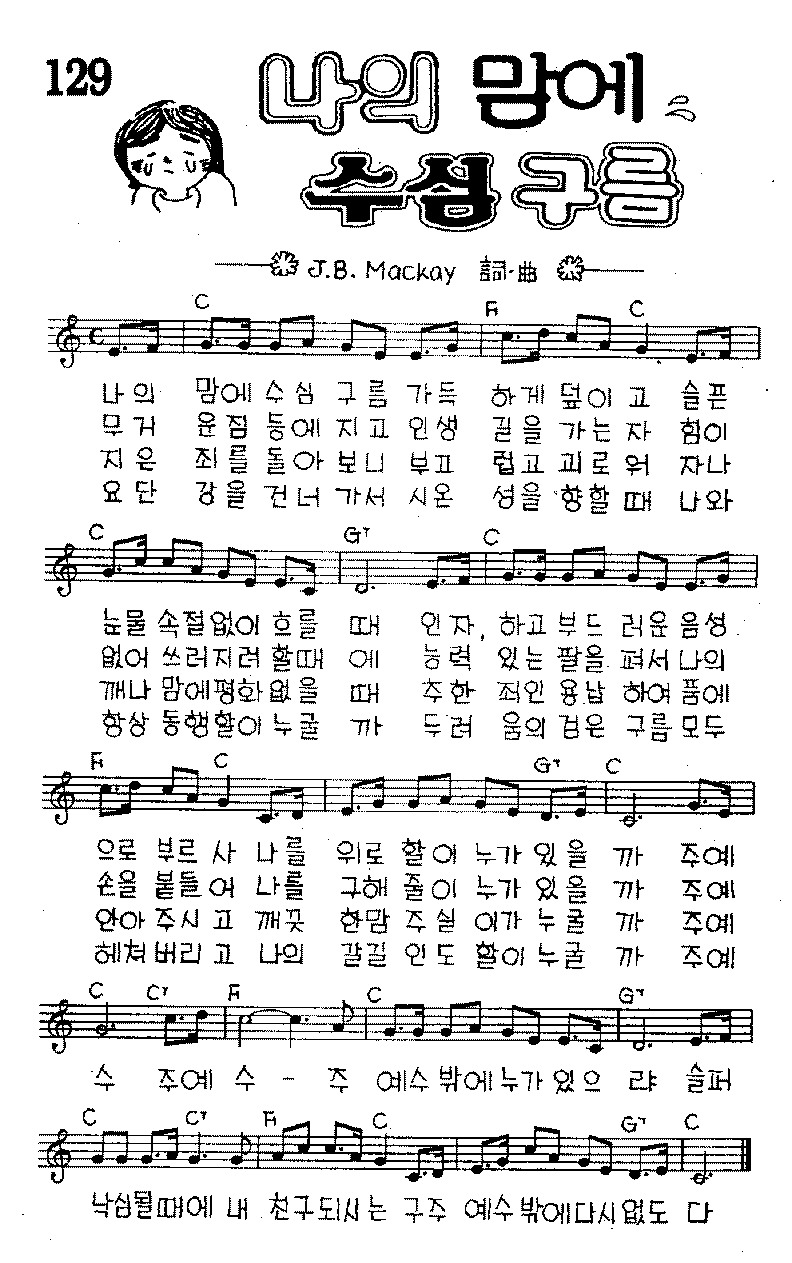 129
나의 맘에
수심 구름
J.B. Mackay 詞·曲
C F C
나의 맘에 수심 구름 가득 하게 덮이고 슬픈
무거운 짐 등에 지고 인생 길을 가는 자 힘이
지은 죄를 돌아보니 부끄럽고 괴로워 자나
요단 강을 건너가서 시온 성을 향할 때 나와
C G7 C
눈물 속절없이 흐를 때 인자, 하고 부드러운 음성
없어 쓰러지려 할때에 능력 있는 팔을 펴서 나의
깨나 맘에 평화 없을 때 추한 죄인 용납하여 품에
항상 동행할이 누굴까 두려움의 검은 구름 모두
F C G7 C
으로 부르사 나를 위로 할이 누가 있을까 주예
손을 붙들어 나를 구해 줄이 누가 있을까 주예
안아 주시고 깨끗한 맘 주실 이가 누굴까 주예
헤쳐버리고 나의 갈길 인도할이 누굴까 주예
C C7 F C G7
수 주예수 - 주 예수밖에 누가 있으랴 슬퍼
C C7 F C G7 C
낙심될때에 내 친구되시는 구주 예수밖에 다시 없도다